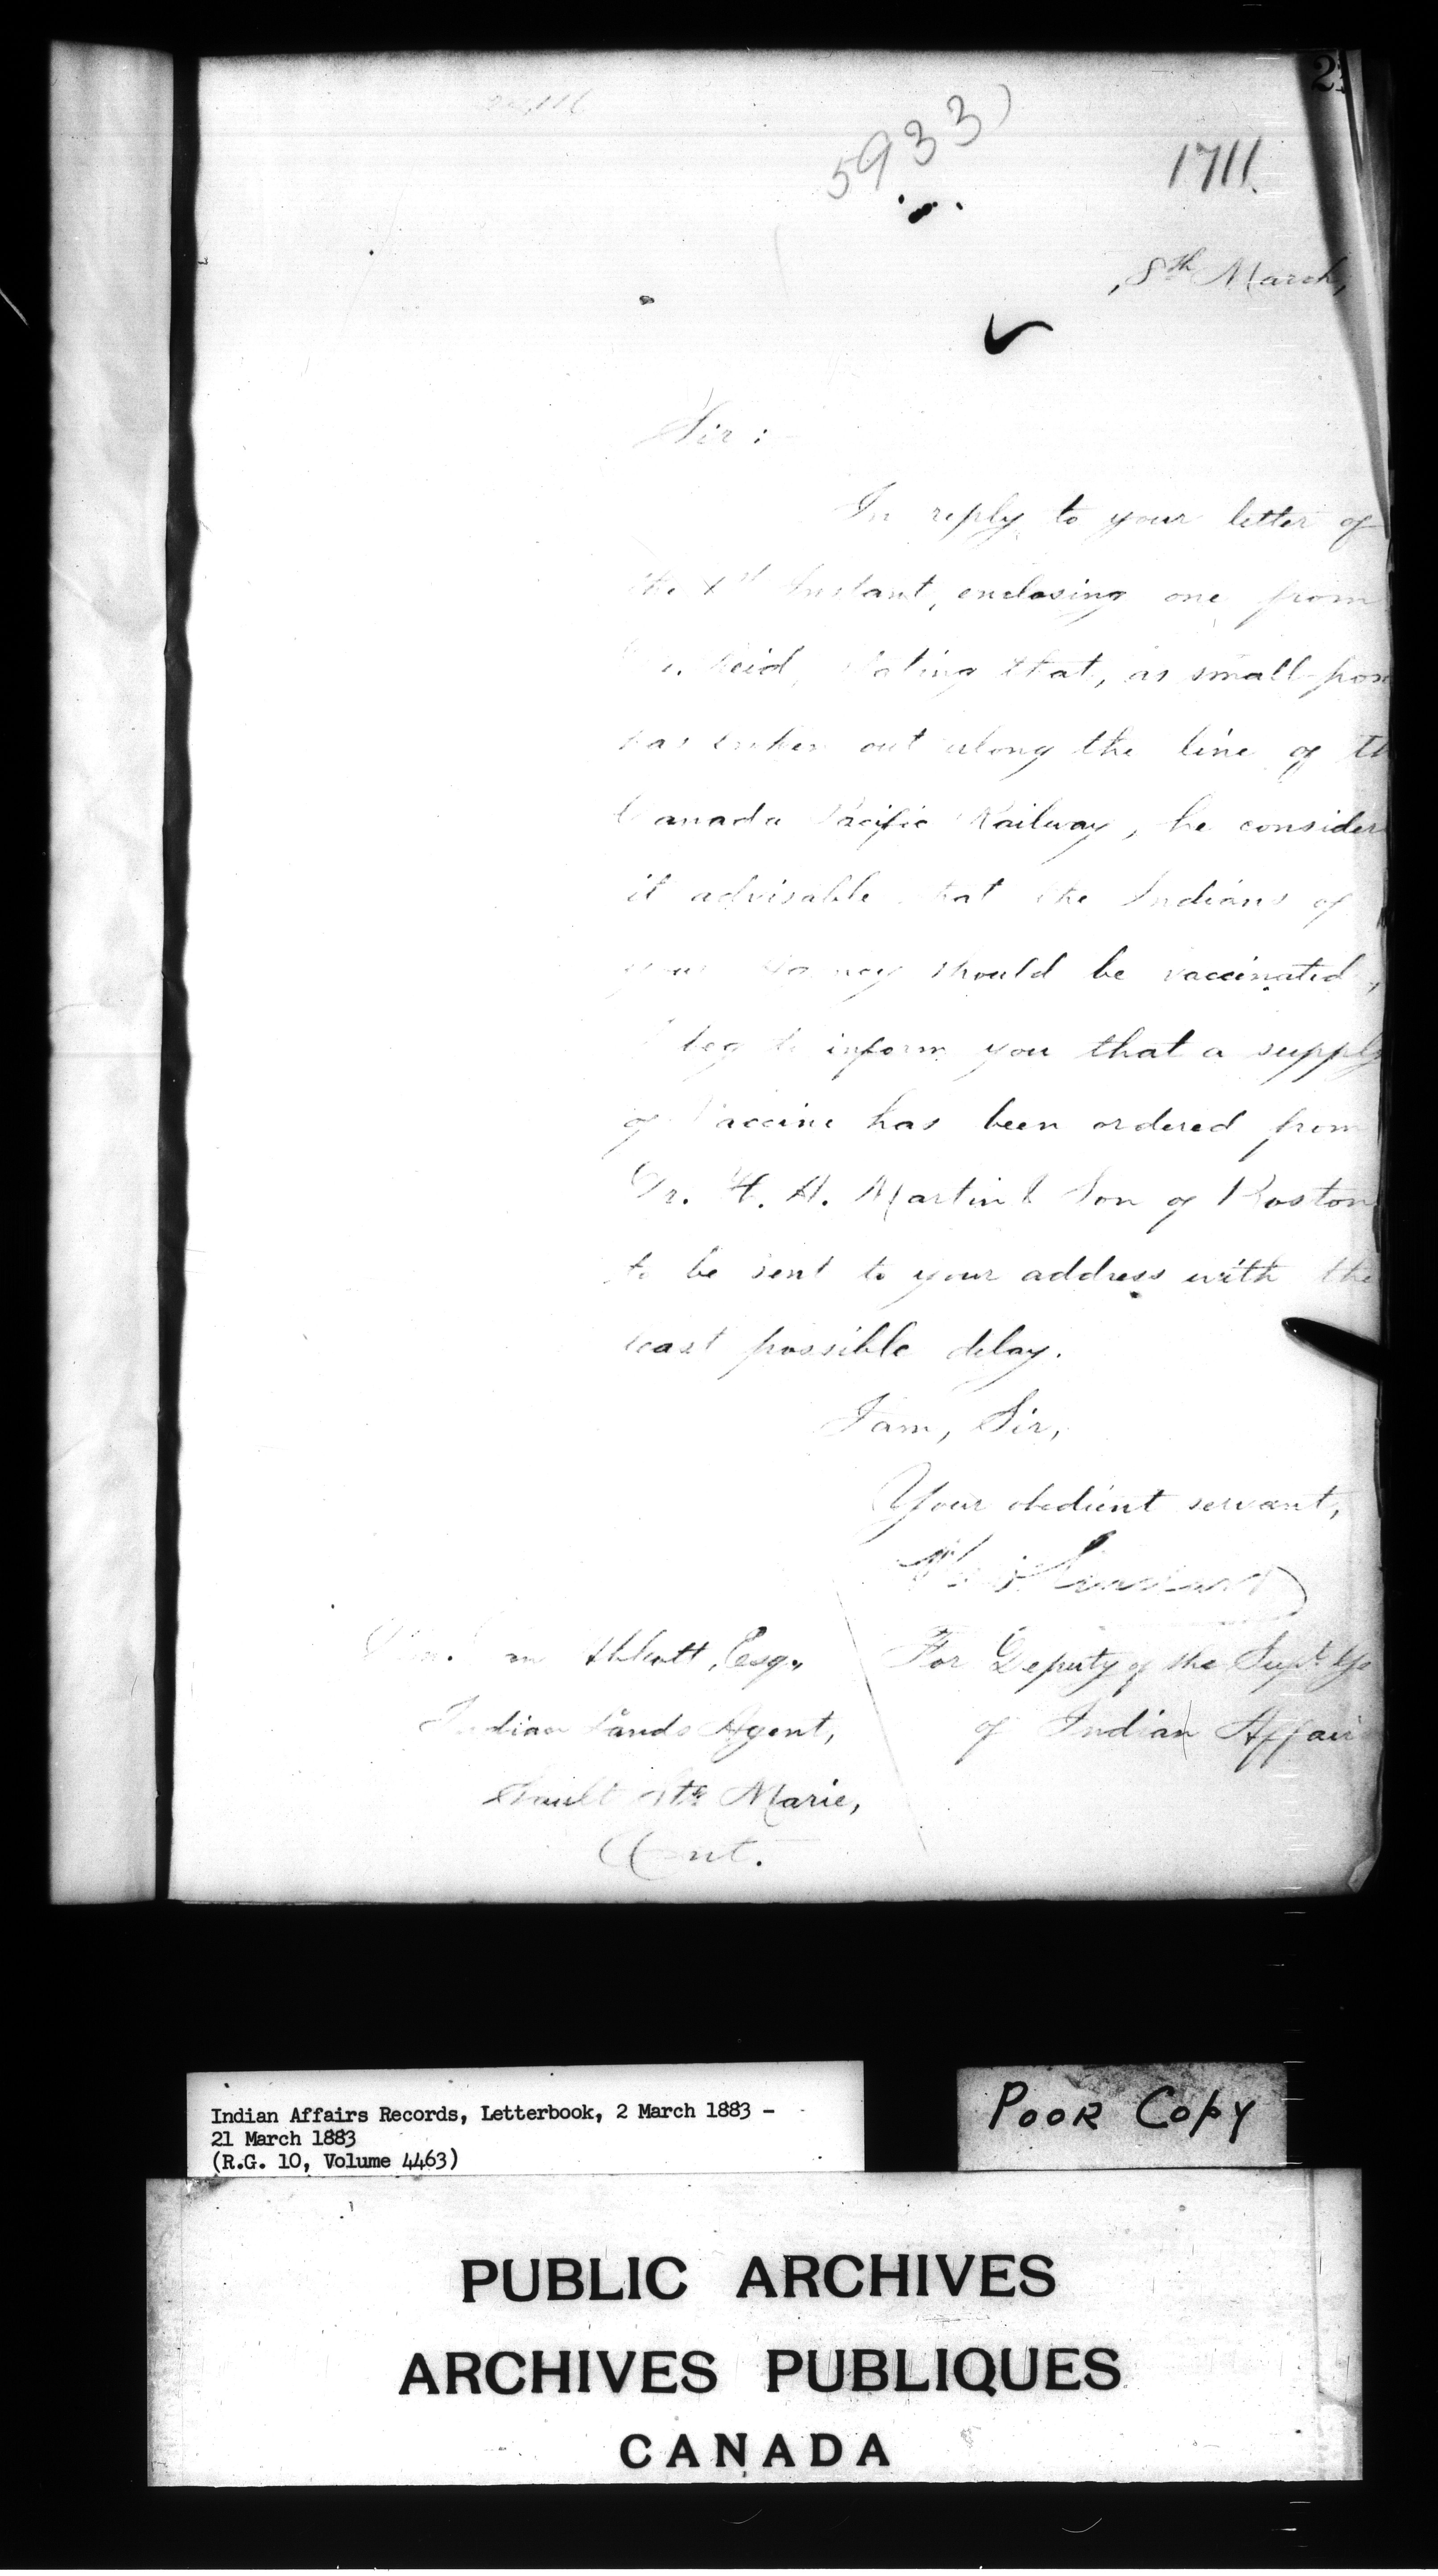 2
5933)
1711
8th March,
Sir:
In reply to your letter of
the 1st Instant, enclosing one from
Reid, stating that, as small-pox
has broken out along the line of th
Canada Pacific Railway, he consider
it advisable that the Indians of
your Agency should be vaccinated,
I beg to inform you that a supply
of Vaccine has been ordered from
Dr. H. A. Martin & Son of Boston
to be sent to your address with the
least possible delay.
I am, Sir,
Your obedient servant,
For Deputy of the Supt. Ge
of Indian Affair
Abbott, Esq.,
Indian Lands Agent,
Sault Ste Marie,
Ont.
Indian Affairs Records, Letterbook, 2 March 1883 -
21 March 1883
(R.G. 10, Volume 4463)
POOR COPY
PUBLIC ARCHIVES
ARCHIVES PUBLIQUES
CANADA